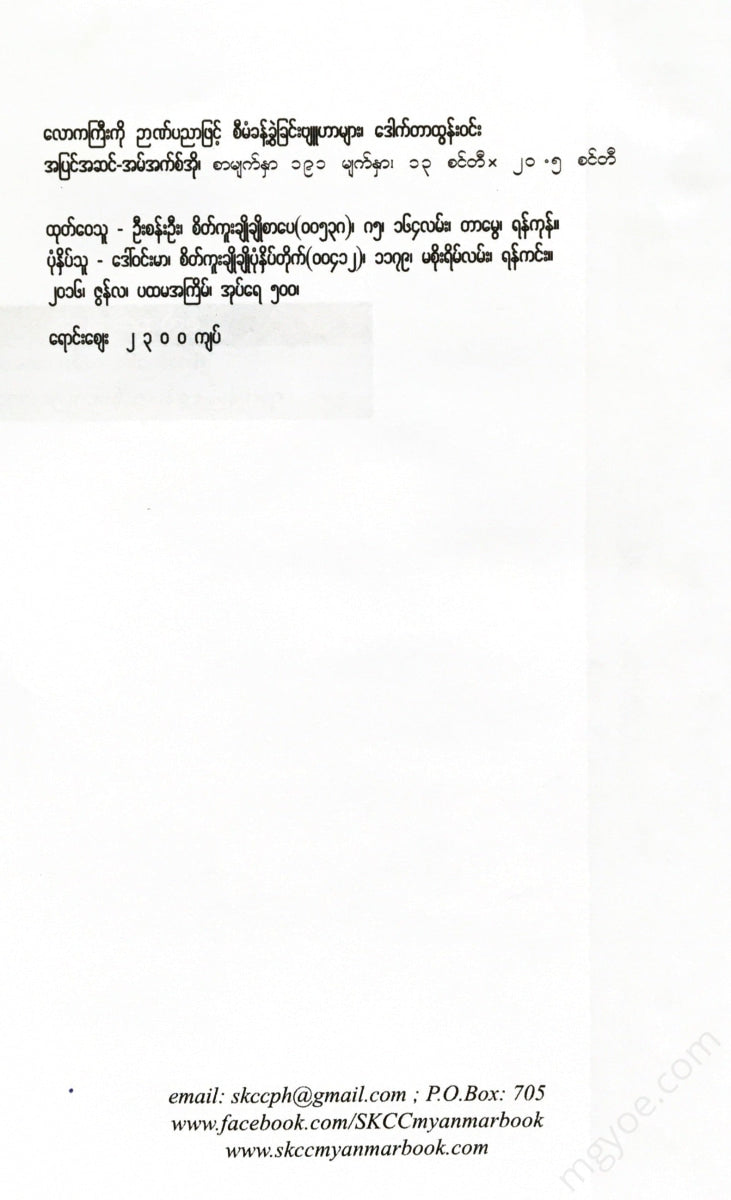 လောကကြီးကို ဉာဏ်ပညာဖြင့် စီမံခန့်ခွဲခြင်းဗျူဟာများ၊ ဒေါက်တာထွန်းဝင်း
အပြင်အဆင်-အမ်အက်စ်အို၊ စာမျက်နှာ ၁၉၁ မျက်နှာ၊ ၁၃ စင်တီ× ၂၀.၅ စင်တီ
ထုတ်ဝေသူ - ဦးစန်းဦး၊ စိတ်ကူးချိုချိုစာပေ(၀၀၅၃၈)၊ ဂ၅၊ ၁၆၄လမ်း၊ တာမွေ၊ ရန်ကုန်။
ပုံနှိပ်သူ - ဒေါ်ဝင်းမာ၊ စိတ်ကူးချိုချိုပုံနှိပ်တိုက်(၀၀၄၁၂)၊ ၁၁၇၉၊ မစိုးရိမ်လမ်း၊ ရန်ကင်း။
၂၀၁၆၊ ဇွန်လ၊ ပထမအကြိမ်၊ အုပ်ရေ ၅၀၀၊
ရောင်းဈေး ၂ ၃ ၀ ၀ ကျပ်
email: skccph@gmail.com ; P.O.Box: 705
www.facebook.com/SKCCmyanmarbook
www.skccmyanmarbook.com
mgyoe.com